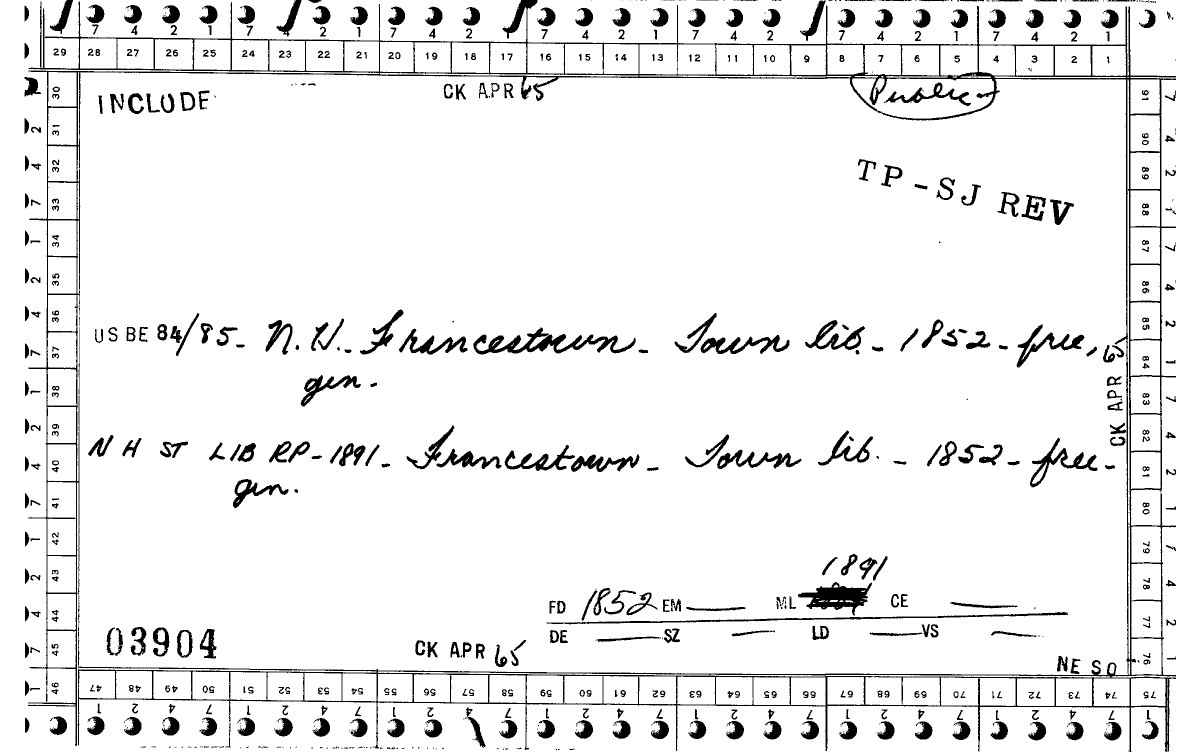 7 4 2 1 7 2 1 7 4 2 7 4 2 1 7 4 2 1 7 4 2 1 7 4 2 1
29 28 27 26 25 24 23 22 21 20 19 18 17 16 15 14 13 12 11 10 9 8 7 6 5 4 3 2 1
INCLUDE CK APR 65 Public
TP-SJ REV
US BE 84/85- N.H.- Francestown- Town lib.- 1852- free,
gen.
N H ST LIB RP-1891- Francestown- Town lib.- 1852- free-
gen.
CK APR 65
1891
FD 1852 EM — ML CE —
DE — SZ — LD — VS —
03904 CK APR 65
NE SO
30 31 32 33 34 35 36 37 38 39 40 41 42 43 44 45 46
91 90 89 88 87 86 85 84 83 82 81 80 79 78 77 76
47 48 49 50 51 52 53 54 55 56 57 58 59 60 61 62 63 64 65 66 67 68 69 70 71 72 73 74 75